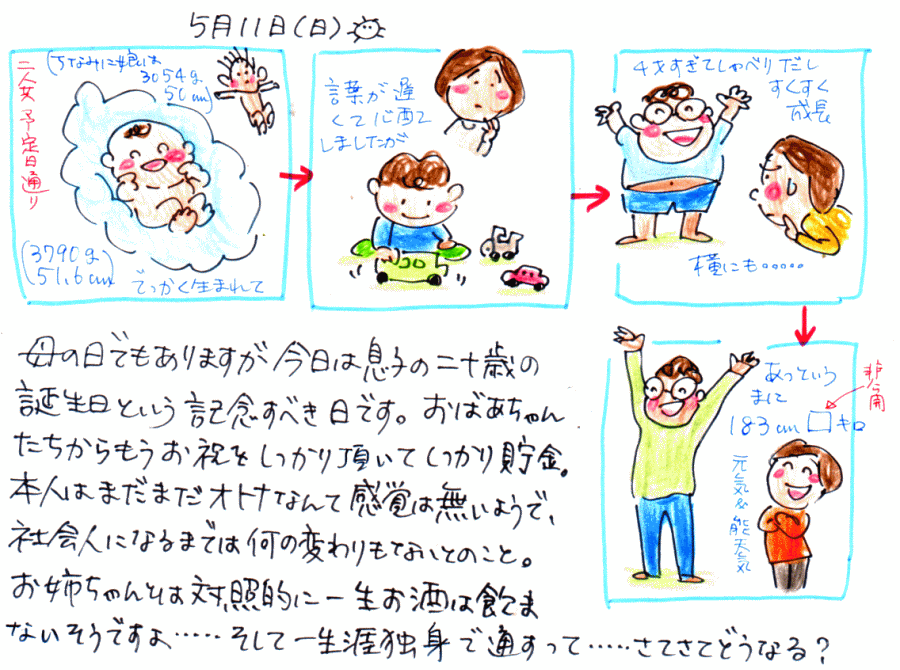 5月11日(日)
(ちなみに娘は
3054g
50cm)
二人女予定日通り
(3790g
51.6cm)
でっかく生まれて
言葉が遅
くて心配
しましたが
4才すぎてしゃべりだし
すくすく
成長
横にも……
あっという
まに
183cm □キロ
非公開
元気&能天気
母の日でもありますが今日は息子の二十歳の
誕生日という記念すべき日です。おばあちゃん
たちからもうお祝をしっかり頂いてしっかり貯金。
本人はまだまだオトナなんて感覚は無いようで、
社会人になるまでは何の変わりもないとのこと。
お姉ちゃんとは対照的に一生お酒は飲ま
ないそうですよ……そして一生涯独身で通すって……さてさてどうなる?